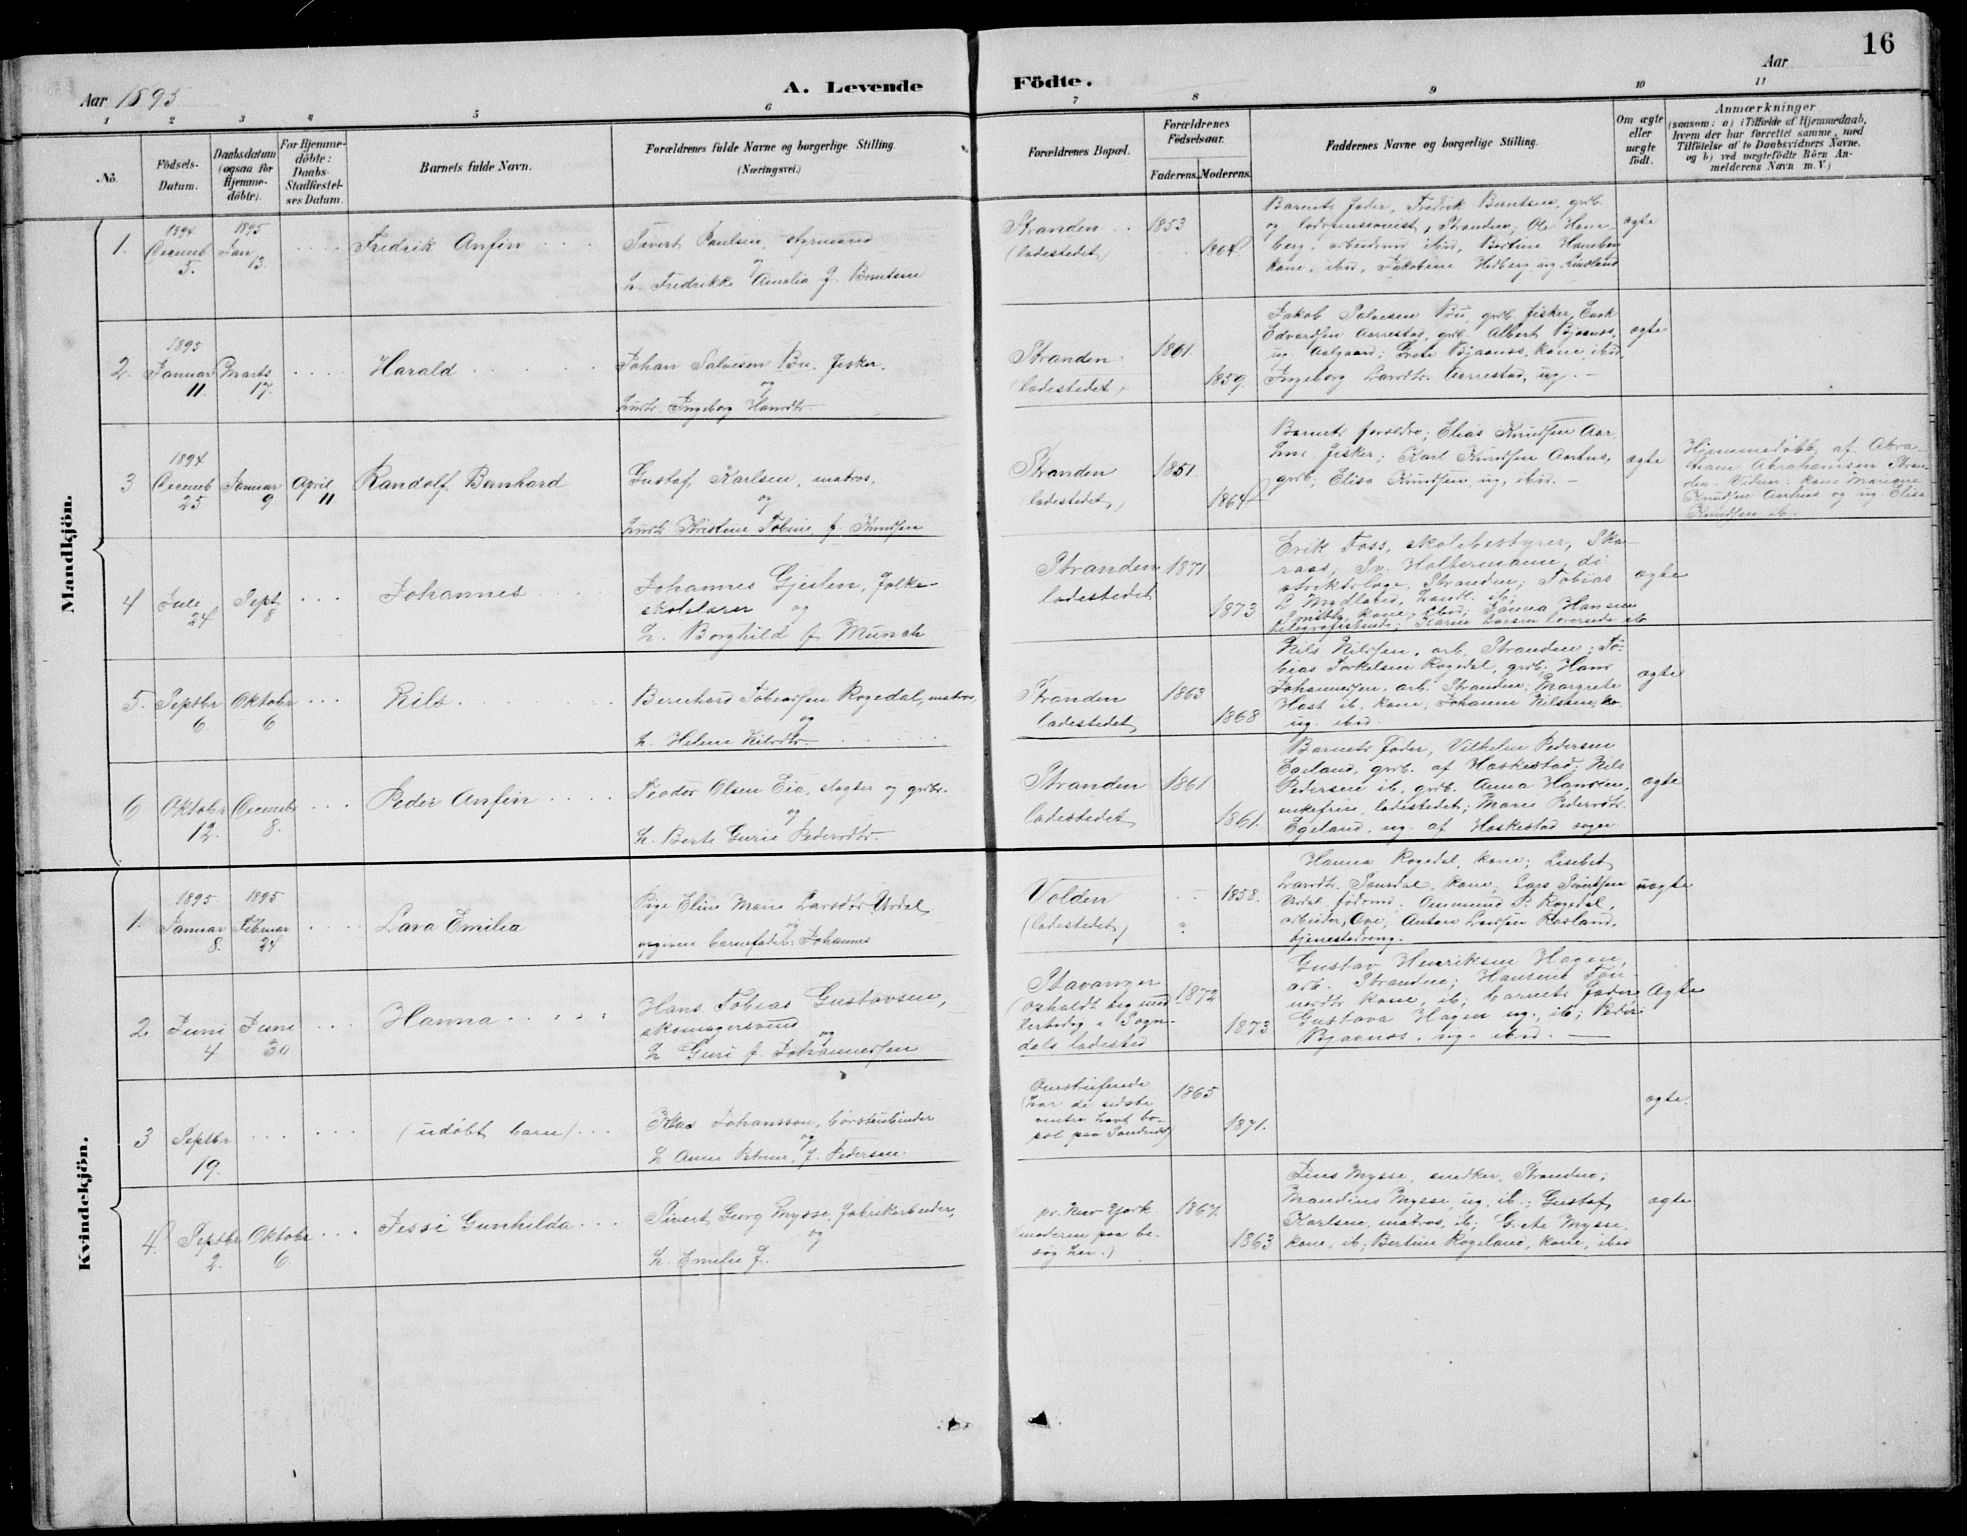 16
Aar 1895
A. Levende Födte.
Aar
1 2 3 4 5 6 7 8 9 10 11
No.
Födsels-Datum.
Daabsdatum (ogsaa for Hjemmedöbte).
For Hjemmedöbte: Daabs-Stadfæstelses Datum.
Barnets fulde Navn.
Forældrenes fulde Navne og borgerlige Stilling. (Næringsvei.)
Forældrenes Bopæl.
Forældrenes Födselsaar.
Faderens. Moderens.
Faddernes Navne og borgerlige Stilling.
Om ægte eller uægte födt.
Anmærkninger
(saasom: a) i Tilfælde af Hjemmedaab, hvem der har forrettet samme, med Tilföielse af to Daabsvidners Navne, og b) ved uægtefödte Börn Anmelderens Navn m. V.)
Mandkjön.
1. 1894 Decemb 5. 1895 Jan 13. Fredrik Anfin
Sivert Paulsen, styrmand
og
h. Fredrikke Amalia f. Berntsen
Stranden (ladestedet) 1853 1864
Barnets fader, Fredrik Berntsen, grdb.
og Stranden, Ole Hane-
berg, arbeidsmd ibid, Bertine Haneberg
kone, ibid, Jakobine Hedberg ug. 
ægte
2. 1895 Januar 11. Marts 17. Harald
Johan Salvesen Bu, fisker.
og
hustr. Ingeborg Hansdtr.
Stranden (ladestedet) 1861. 1859.
Jakob Salvesen Bu, grdb. fisker, Enok
Edvardsen Aarrestad, grdb. Albert Bjaanes,
ug. Aalgaard; Grete Bjaanes, kone ibid.
Ingeborg Aarrestad, ug. -
ægte
3 1894 Decemb 25 Januar 9 April 11 Randolf Bernhard
Gustaf Karlsen, matros,
og
hustr. Kristine Tobine f. Knudsen
Stranden (ladestedet,) 1851. 1864
Barnets forældre; Elias Knudsen Aar-
hus, fisker; Karl Knudsen Aarhus,
grdb; Elisa Knudsen ug, ibid. -
ægte
Hjemmedøbt af Abra-
ham Abrahamsen Stran-
den. Vidner: kone Mariane
Knudsen Aarhus og ug. Elisa
Knudsen ib.
4 Juli 24 Sept 8 Johannes
Johannes Gjesten, folke-
skolelærer og
h. Borghild f. Münch
Stranden ladestedet 1871. 1873
Erik Foss, skolebestyrer, Ska-
raas, Holtermann, di
striktslæge, Stranden; Tobias
kone, ibid; Hansen
telegrafistinde; Karen Larsen lærerinde ib
ægte
5. Septbr 6 Oktobr 6 Nils
Bernhard Tobiassen Rogedal, matros,
og
h. Helene Nilsdtr.
Stranden ladestedet 1863 1868
Nils Nilssen, arb. Stranden; To-
bias Torkelsen Rogedal, grdb. Hans
Johannessen, arb. Stranden; Margrete
Hast ib, kone; Johanne Nilssen,
ug. ibid.
ægte
6 Oktobr 12. Decemb 8. Peder Anfin
Teodor Olsen Eia, slagter og grdbr.
og
h. Berte Gurie Pedersdtr.
Stranden ladestedet 1861 1861.
Barnets fader, Vilhelm Pedersen
Egeland, grdb. af Heskestad; Nils
Pedersen ib, grdb. Anna Hansen,
enkefrue, ladestedet; Marie Pedersdtr.
Egeland, ug. af Heskestad sogn
ægte
Kvindekjön.
1. 1895 Januar 8. 1895 Februar 24 Lava Emilia
Pige Eline Marie Larsdtr Urdal
og
opgiven barnefader: Johannes
Volden (ladestedet) ? 1858.
Hanna Rogedal, kone; Lisebet
Larsdtr. kone, Lars Sivertsen
Urdal, føderaad. Ommund P. Rogedal,
arbeider, Ove, Anton Larsen Røsland,
tjenestedreng.
uægte
2 Juni 4 Juni 30 Hanna
Hans Tobias Gustavsen,
skomagersvend
og
h. Guri f. Johannessen
Stavanger
(opholdt sig mid-
lertidig i Sogn-
dals ladested 1872 1873
Gustav Henriksen Hagen,
arb. Stranden; Hansine Tøn-
nesdtr kone, ib; barnets fader
Gustava Hagen ug., ib; Peder
Bjaanes, ug. ibid.
Ægte
3 Septbr 19. (udøbt barn)
Johansson, børstenbinder
og
h. Anne Petrine, f. Pedersen
Omstreifende
(har de sidste
vintre havt bo-
pæl paa Sandnes) 1865 1871.
ægte.
4. Septbr 2. Oktobr 6 Jessi Gunhilda
Sivert Georg Mysse, fabrikarbeider,
og
h. Emelie J.
pr. New York
(moderen paa be-
søg her.) 1867. 1863
Jens Mysse, snedker, Stranden;
Mandius Mysse, ug, ib.; Gustaf
Karlsen, matros, ib; Grete Mysse,
kone, ib; Bertine Rogeland, kone, ibid
ægte